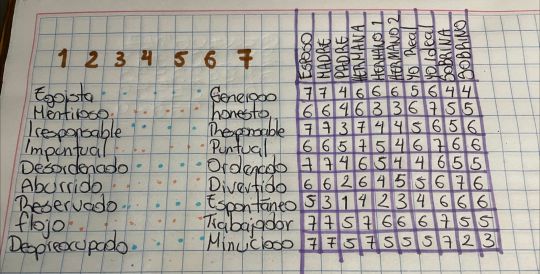 1 2 3 4 5 6 7
ESPOSO MADRE PADRE HERMANA HERMANO 1 HERMANO 2 YO Real YO Ideal SOBRINA SOBRINO
Egoista Generoso 7 7 4 6 6 6 5 6 4 4
Mentiroso honesto 6 6 4 6 3 3 6 7 5 5
Iresponsable Responsable 7 7 3 7 4 4 5 6 5 6
Impuntual Puntual 6 6 5 7 5 4 6 7 6 6
Desordenado Ordenado 7 7 4 6 5 4 4 6 5 5
Aburrido Divertido 6 6 2 6 4 5 5 6 7 6
Reservado Espontaneo 5 3 1 4 2 3 4 6 6 6
flojo Trabajador 7 7 5 7 6 6 6 7 5 5
Despreocupado Minucioso 7 7 5 7 5 5 5 7 2 3